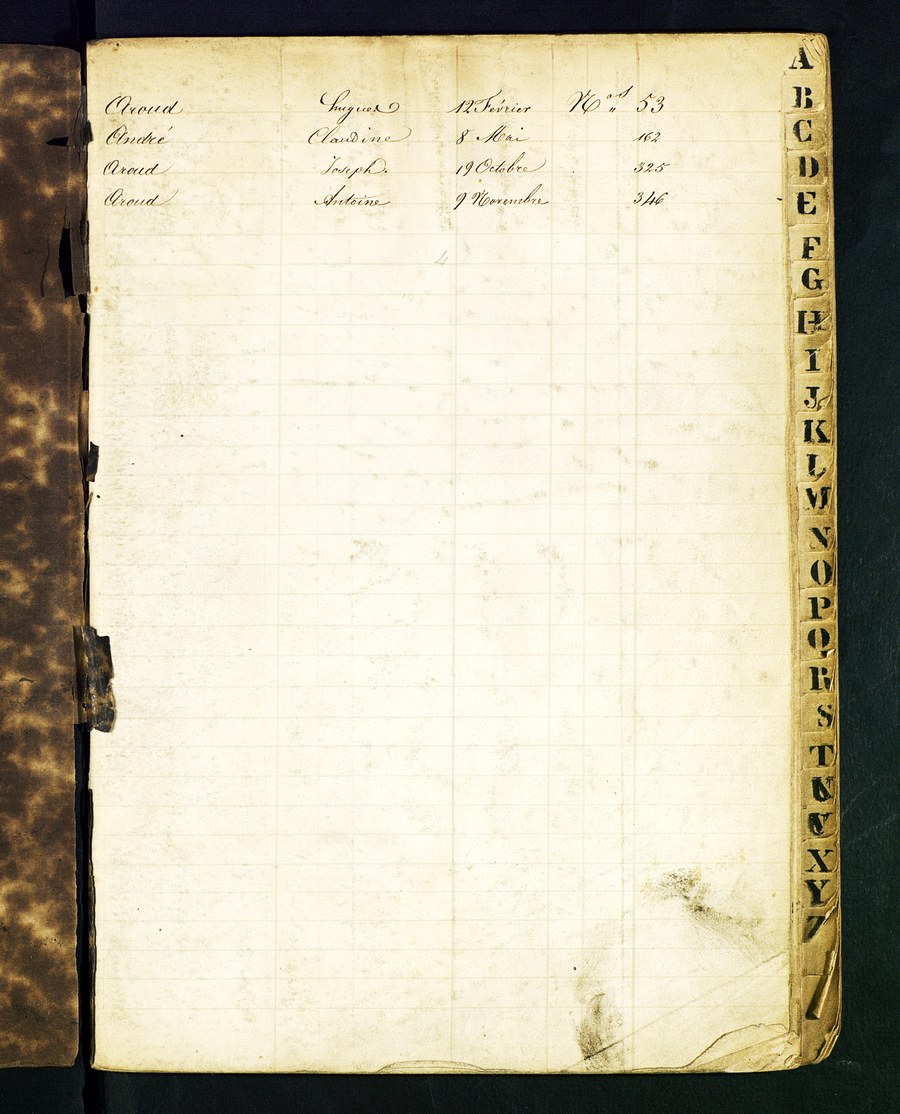 Aroud Hugues 12 Février Nos 53
André Claudine 8 Mai 162
Aroud Joseph. 19 Octobre 325
Aroud Antoine 9 Novembre 346
4
A
B
C
D
E
F
G
H
I
J
K
L
M
N
O
P
Q
R
S
T
U
V
X
Y
Z